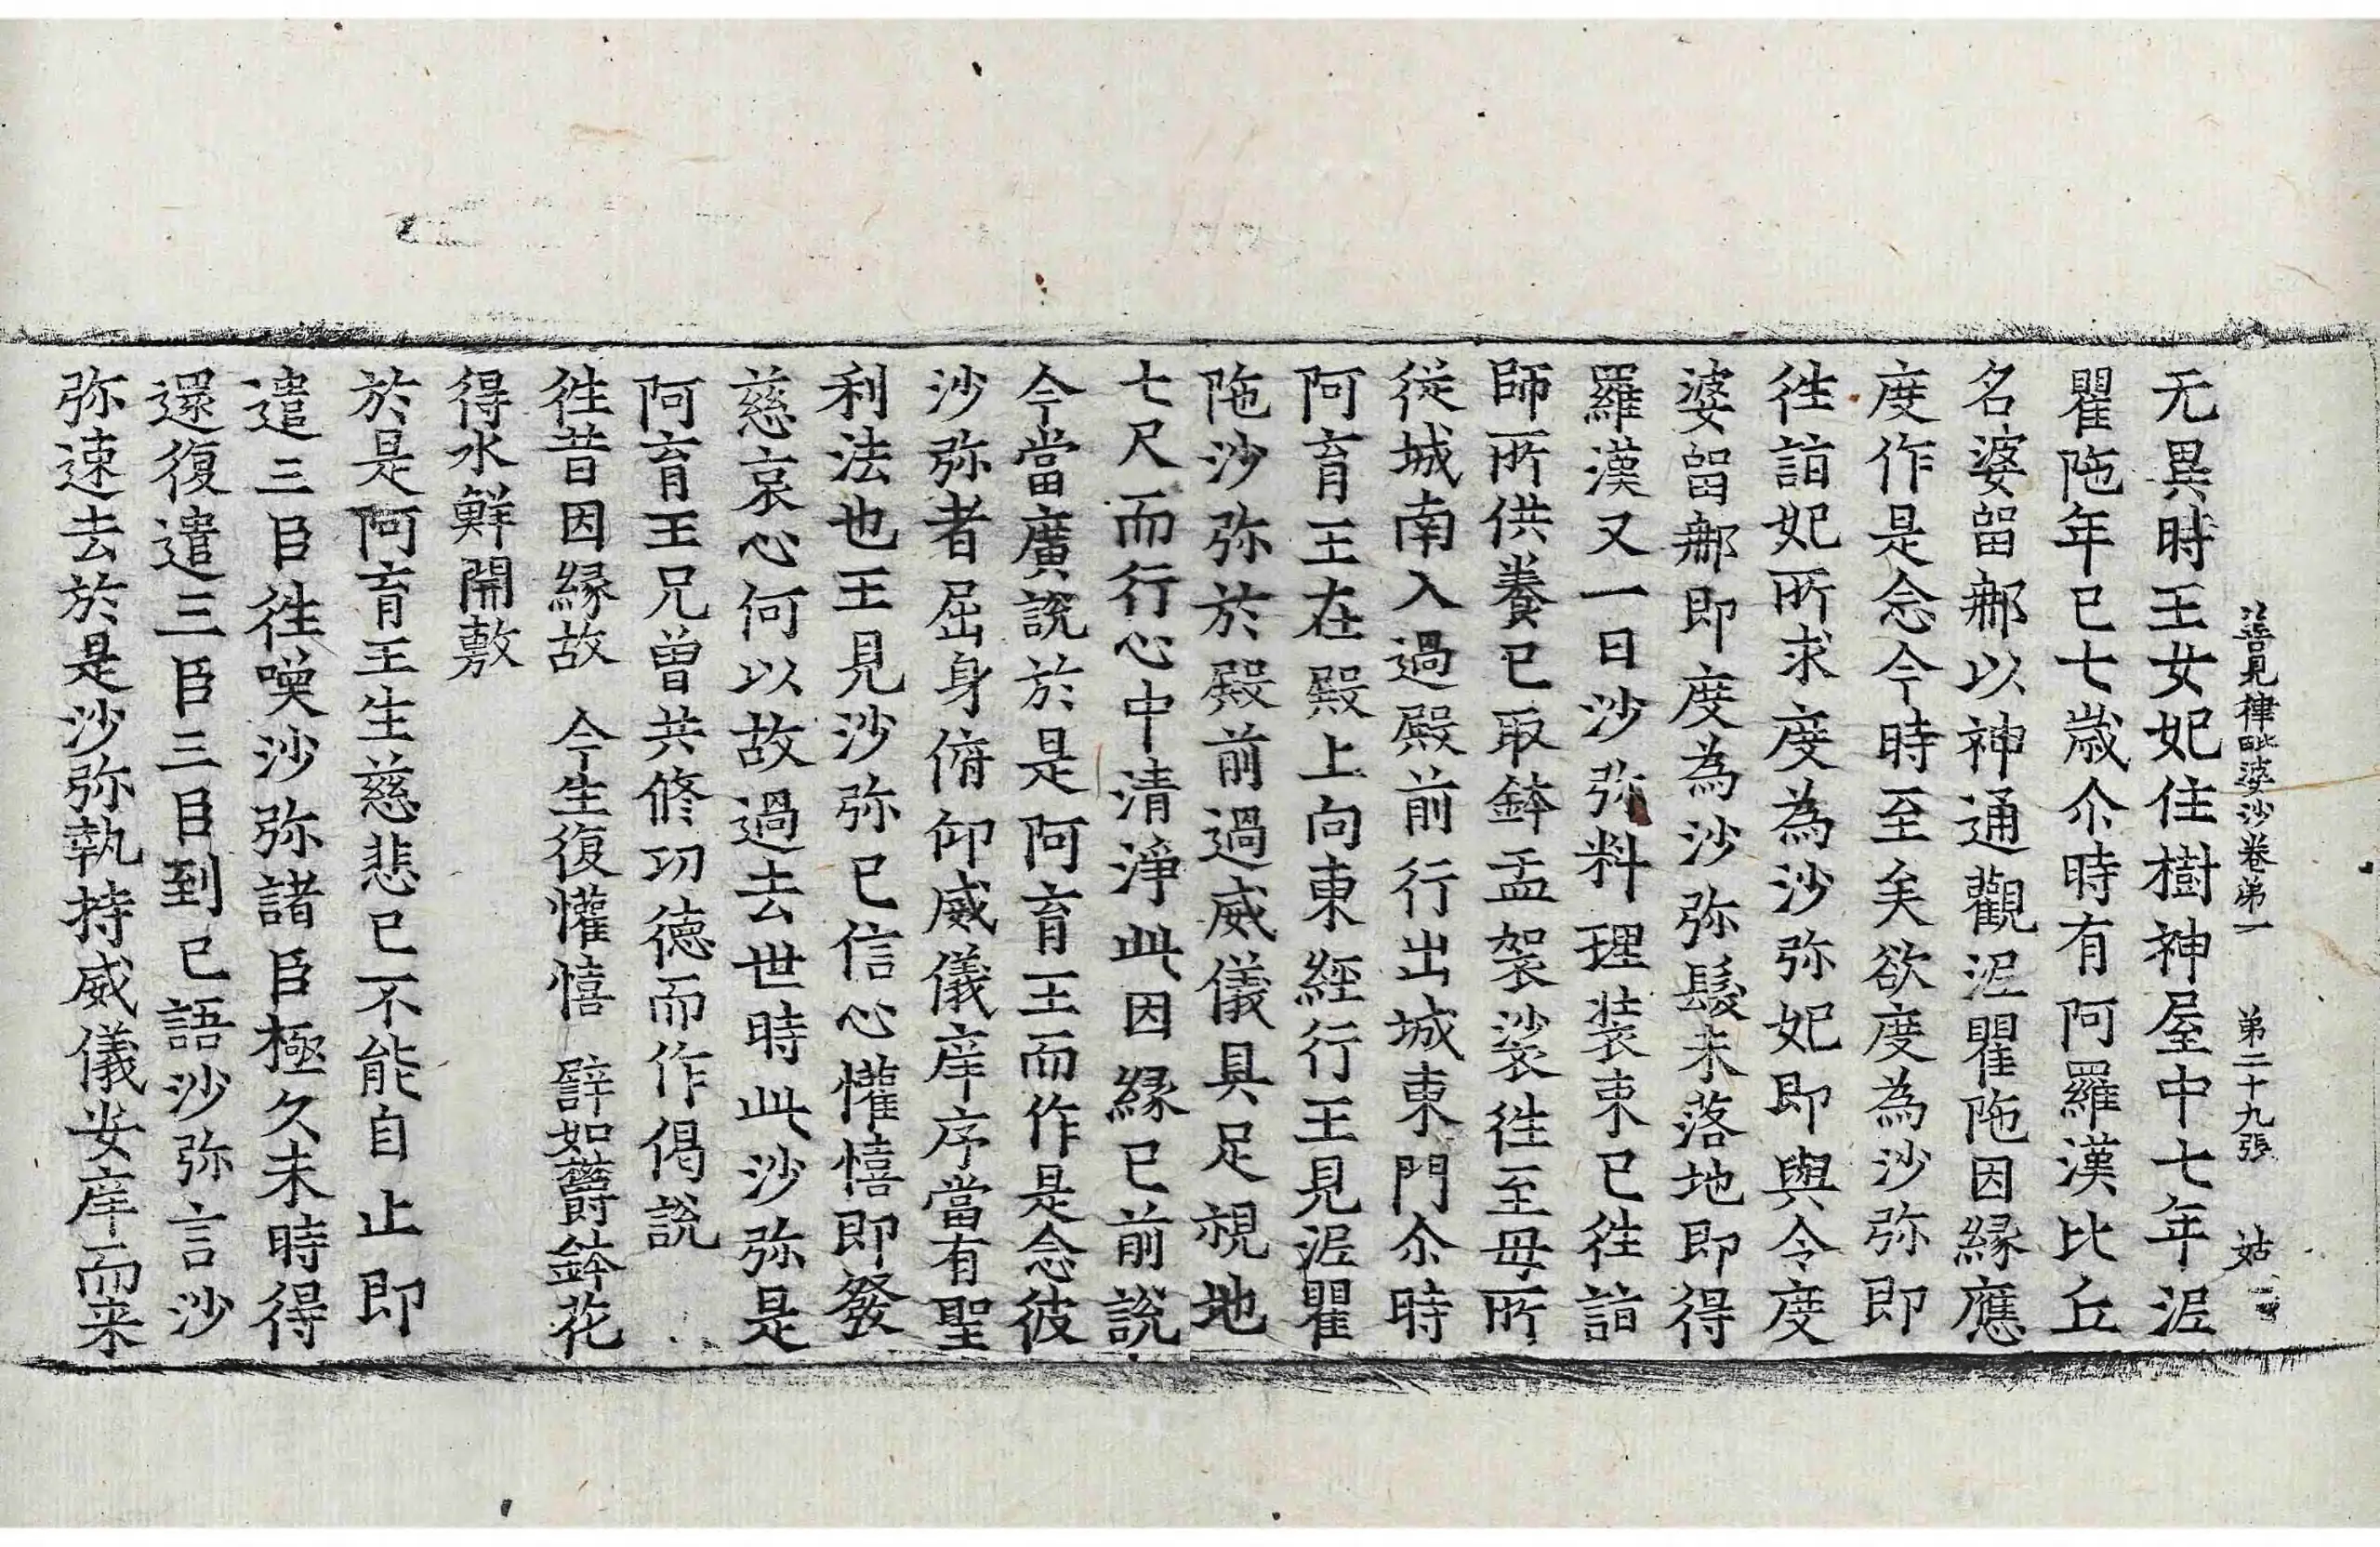 善見律毗婆沙卷第一 第二十九張 姑
无異時王女妃住樹神屋中七年泥
瞿陁年已七歲尒時有阿羅漢比丘
名婆留郍以神通觀泥瞿陁因緣應
度作是念今時至矣欲度為沙弥即
往詣妃所求度為沙弥妃即與令度
婆留郍即度為沙弥髮未落地即得
羅漢又一日沙弥料理装束已往詣
師所供養已取鉢盂袈裟往至母所
從城南入過殿前行出城東門尒時
阿育王在殿上向東經行王見泥瞿
陁沙弥於殿前過威儀具足視地
七尺而行心中清淨此因緣已前說
今當廣說於是阿育王而作是念彼
沙弥者屈身俯仰威儀庠序當有聖
利法也王見沙弥已信心懽憘即發
慈哀心何以故過去世時此沙弥是
阿育王兄曾共修功德而作偈說
往昔因緣故 今生復懽憘 譬如欝鉢花
得水鮮開敷
於是阿育王生慈悲已不能自止即
遣三臣往喚沙弥諸臣極久未時得
還復遣三臣三臣到已語沙弥言沙
弥速去於是沙弥執持威儀安庠而来